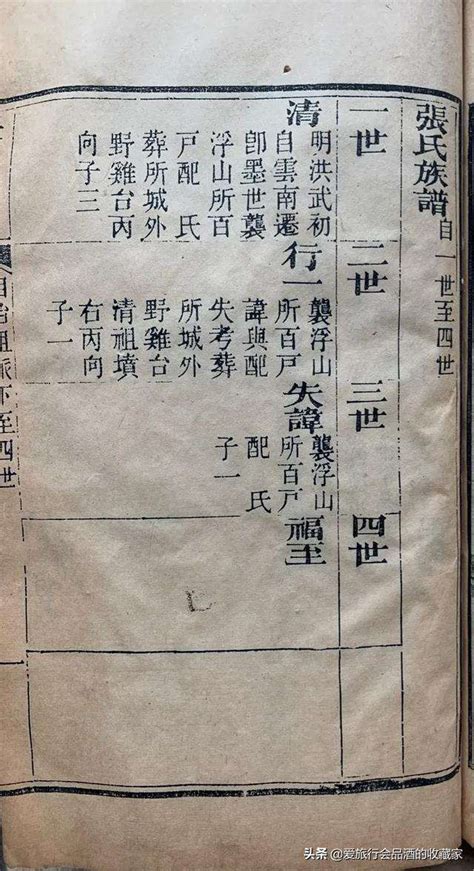 張氏族譜 自一世至四世
一世
清
明洪武初
自雲南遷
卽墨世襲
浮山所百
戶配 氏
葬所城外
野雞台丙
向子三
二世
行一
襲浮山
所百戶
諱與配
失考葬
所城外
野雞台
清祖墳
右丙向
子一
三世
失諱
襲浮山
所百戶
配 氏
子一
四世
福至
至四世
头条 @爱旅行会品酒的收藏家